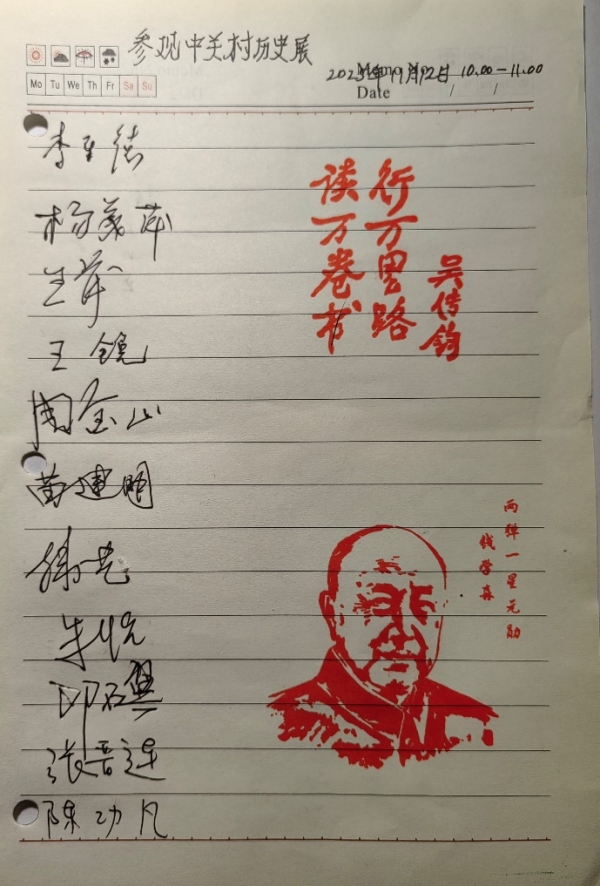 参观中关村历史展
2023年11月12日 10:00-11:00
Date / /
Mo Tu We Th Fr Sa Su
李
杨美萍
王萍
王锐
周金山
苗建明
朱悦
邱
张晋连
陈功凡
行万里路
读万卷书
吴传钧
两弹一星元勋
钱学森